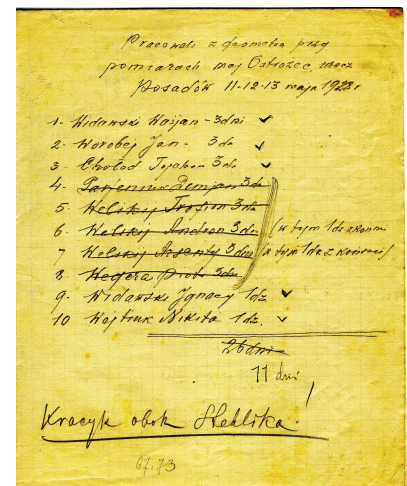 Pracowali z geometrą przy
pomiarach maj Ostrożec, urocz
Posadów 11-12-13 maja 1923 r
1. Widawski Kasjan - 3 dni ✓
2. Worobej Jan - 3 dn ✓
3. Chołod 3 dn ✓
4. Parfeniuk Demjan 3 dn
5. Welskyj Trofion 3 dn
6. Welskyj Andron 3 dn (w tym 1 dz. z końmi
7. Welskyj 3 dni (w tym 1 dz. z końmi)
8. Hegera Piotr 3 dn
9. Widawski Ignacy 1 dz ✓
10 Wojtiuk Nikita 1 dz. ✓
26 dni
11 dni
Kracyk obok Steblika!
67.73